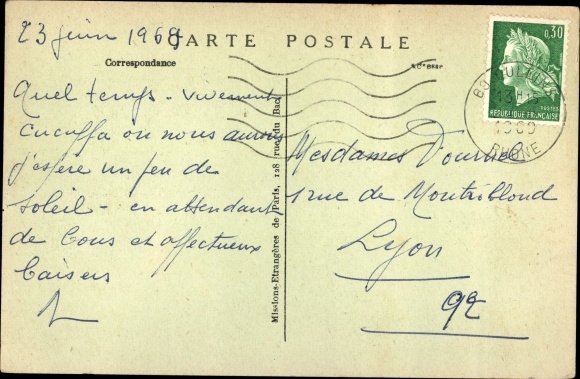 23 juin 1969
CARTE POSTALE
Correspondance
Quel temps - vivement
Cucuffa où nous aurons
j'espère un peu de
soleil - en attendant
de bons et affectueux
baisers
Missions-Etrangères de Paris, 128 rue du Bac
0,30
POSTES
REPUBLIQUE FRANÇAISE
13H
1969
RHONE
Mesdames Fournier
1 rue de Montribloud
Lyon
92